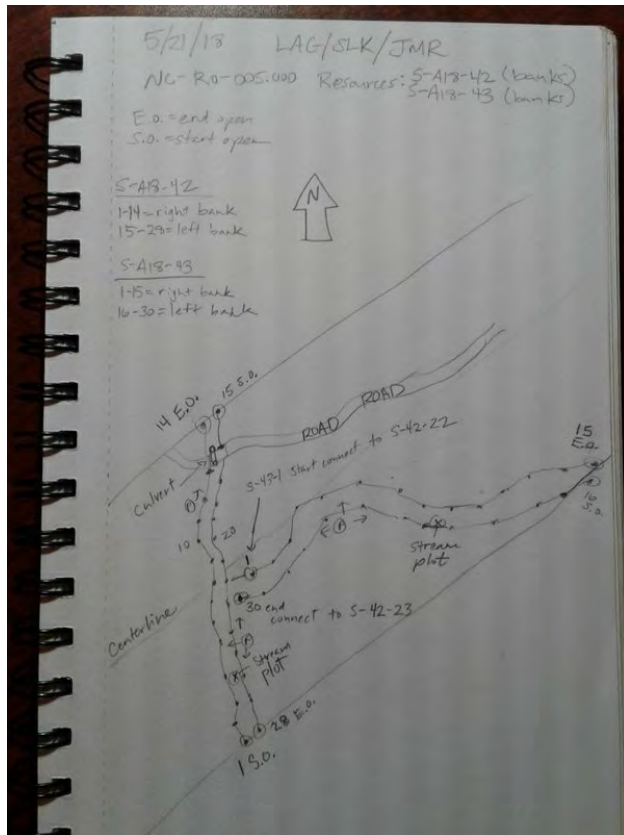 5/21/18 LAG/SLK/JMR
NC-RO-005.000 Resources: S-A18-42 (banks)
S-A18-43 (banks)
E.O. = end open
S.O. = start open
N
S-A18-42
1-14 = right bank
15-28 = left bank
S-A18-43
1-15 = right bank
16-30 = left bank
14 E.O.
15 S.O.
ROAD ROAD
Culvert
S-43-1 Start connect to S-42-22
15
E.O.
16
S.O.
10
20
stream
plot
1
30 end
connect to S-42-23
Centerline
stream
plot
28 E.O.
1 S.O.